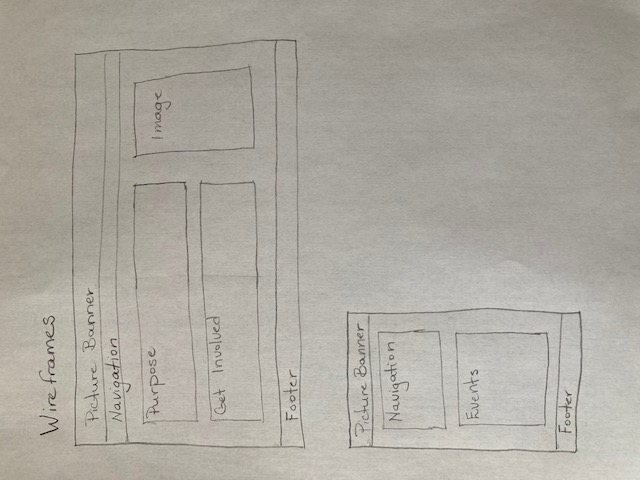 Wireframes
Picture Banner
Navigation
Purpose
Image
Get Involved
Footer
Picture Banner
Navigation
Events
Footer